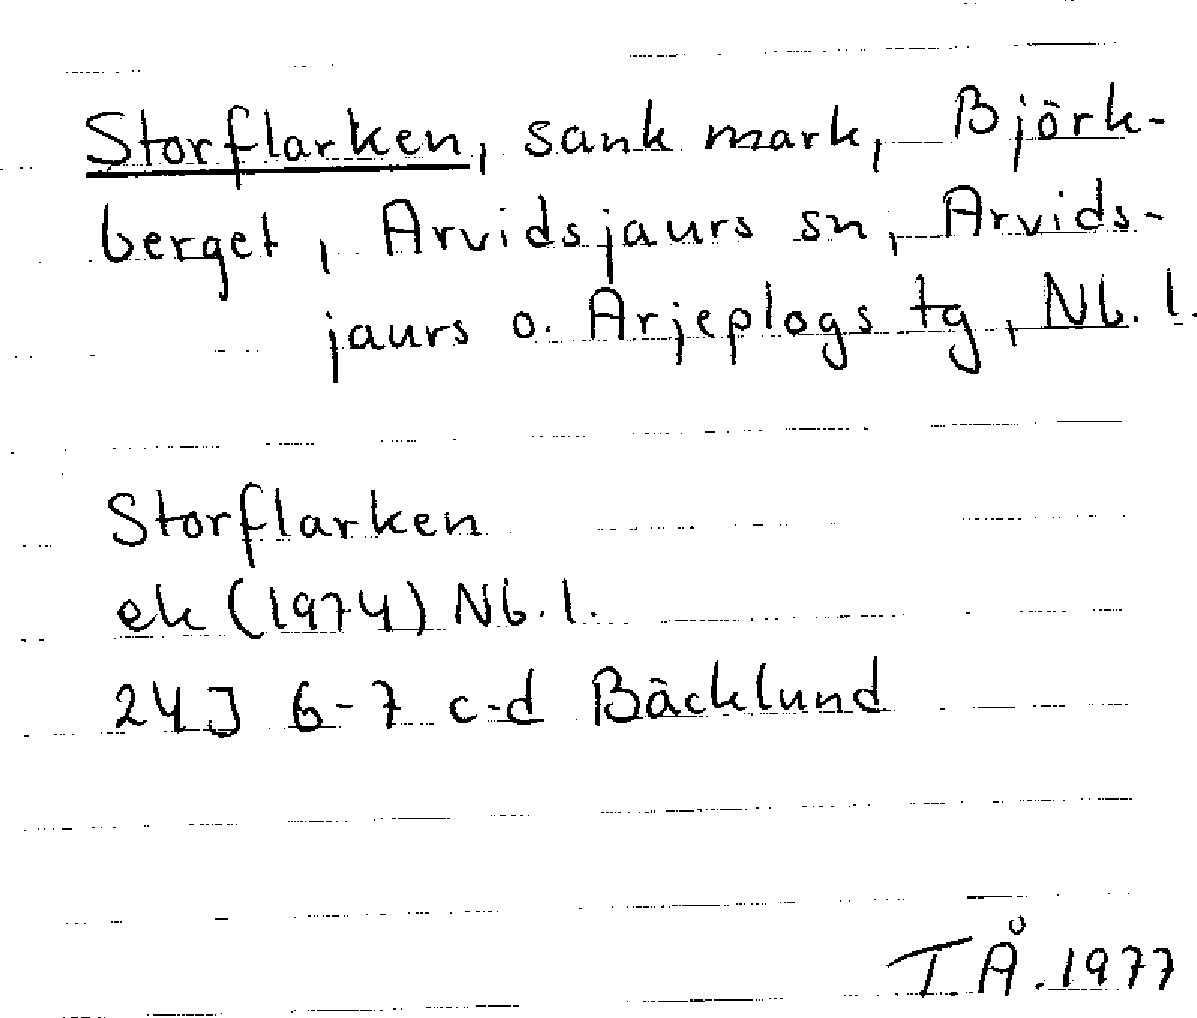 Storflarken, sank mark, Björk-
berget, Arvidsjaurs sn, Arvids-
jaurs o. Arjeplogs tg, Nb. l.
Storflarken
ek (1974) Nb. l.
24J 6-7 c-d Bäcklund
I.Å. 1977